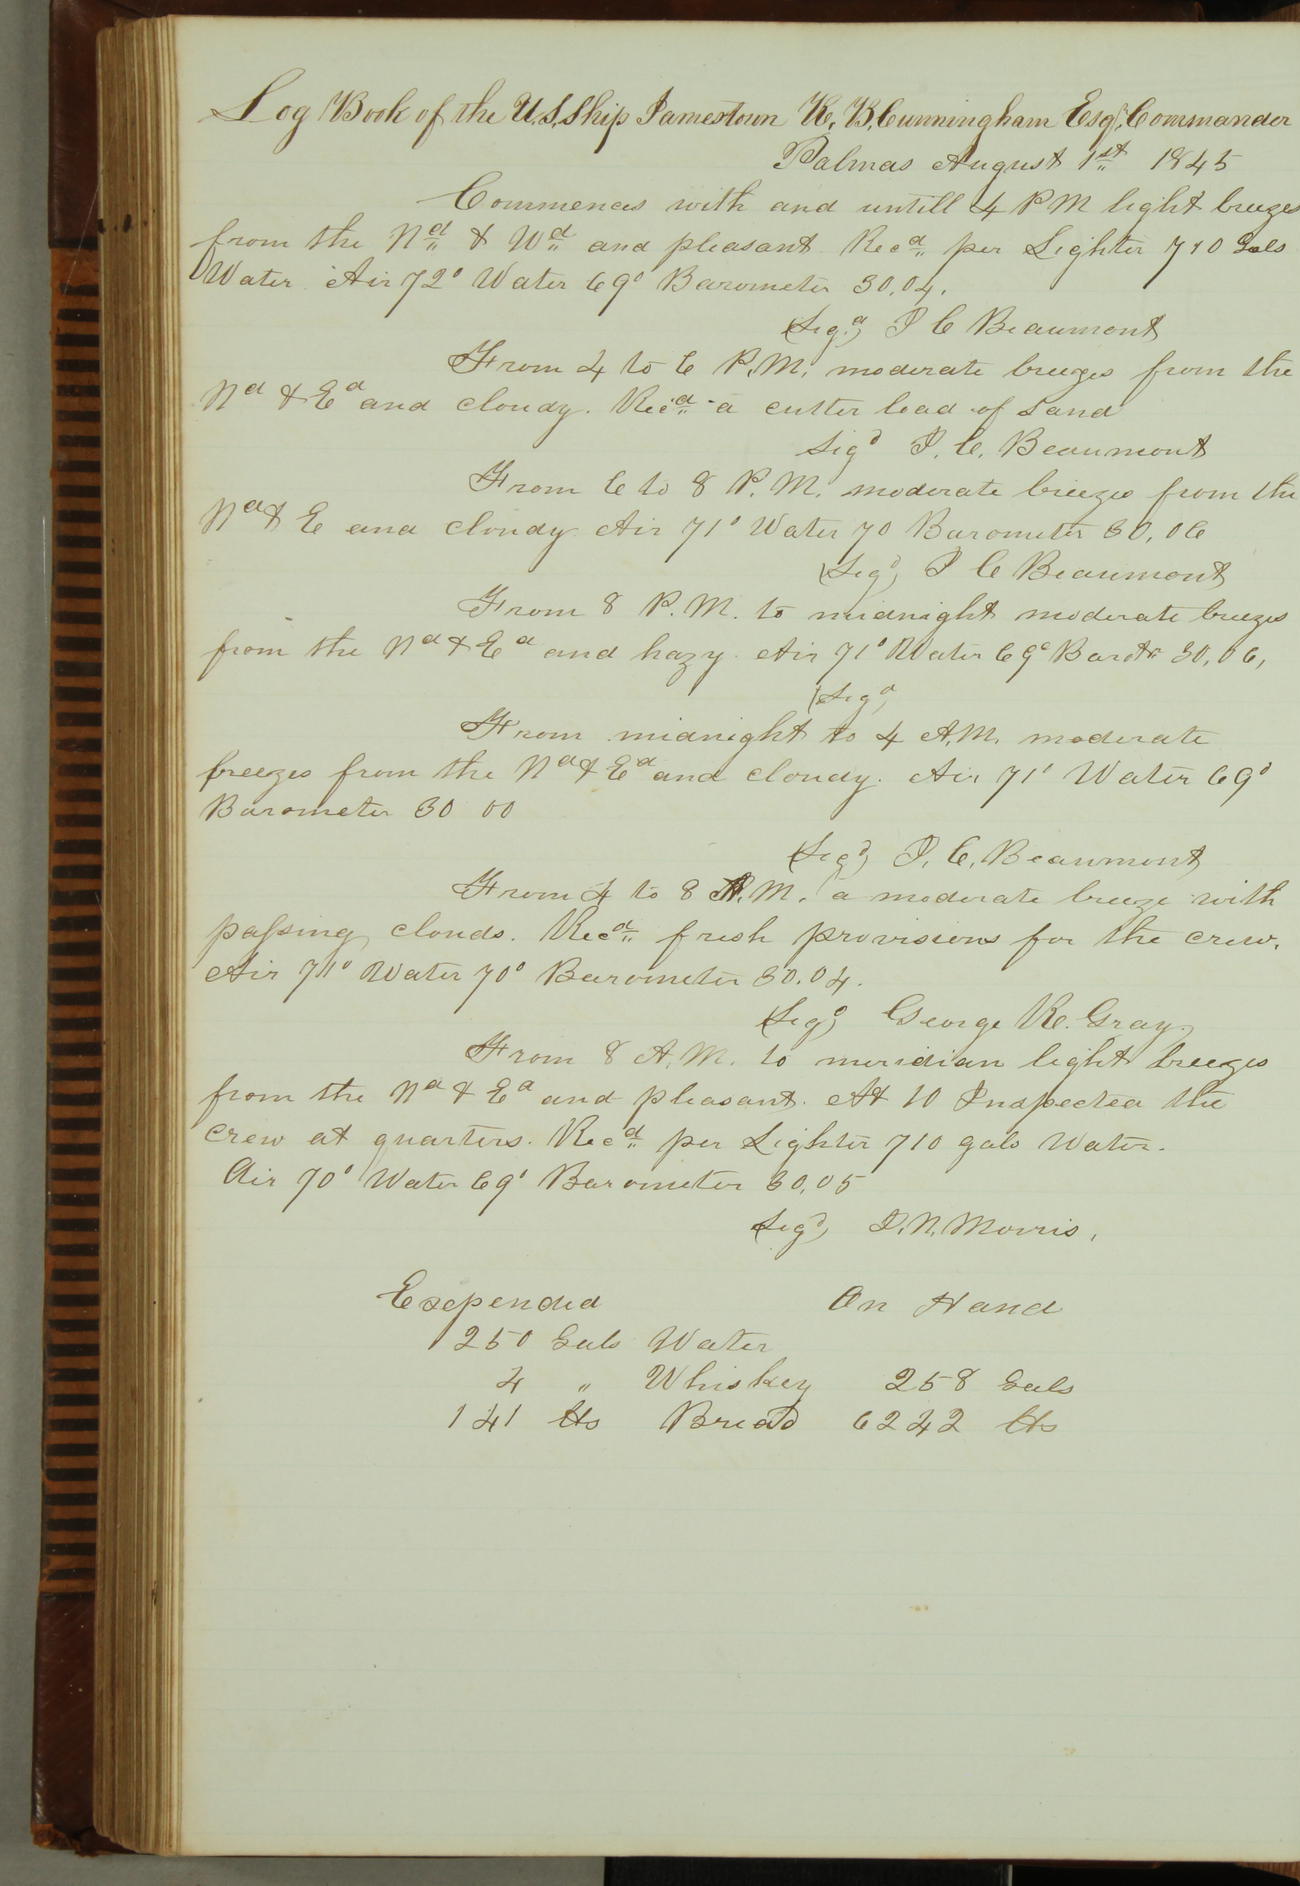 Log Book of the U.S. Ship Jamestown R. B. Cunningham Esqr. Commander
Palmas August 1st 1845
Commences with and untill 4 P M light breezes
from the Nd & Wd and pleasant Recd per Lighter 710 Gals
Water. Air 72° Water 69° Barometer 30.04.
(Sigd) J C Beaumont
From 4 to 6 P.M. moderate breezes from the
Nd & Ed and cloudy. Recd a cutter load of Sand
Sigd J. C. Beaumont
From 6 to 8 P. M. moderate breezes from the
Nd & E and cloudy Air 71° Water 70 Barometer 30,06
(Sigd) J C Beaumont
From 8 P. M. to midnight moderate breezes
from the Nd & Ed and hazy. Air 71° Water 69° Baromtr 30,06,
(Sigd)
From midnight to 4 A.M. moderate
breezes from the Nd & Ed and cloudy. Air 71° Water 69°
Barometer 30 00
(Sigd) J. C. Beaumont
From 4 to 8 A.M. a moderate breeze with
passing clouds. Recd fresh provisions for the crew.
Air 71° Water 70° Barometer 30.04.
(Sigd) George R. Gray.
From 8 A. M. to meridian light breezes
from the Nd & Ed and pleasant. At 10 Inspected the
crew at quarters. Recd per Lighter 710 gals Water.
Air 70° Water 69° Barometer 30,05
(Sigd) J. N. Morris,
Expended On Hand
250 Gals Water
4 " Whiskey 258 Gals
141 lbs Bread 6242 lbs